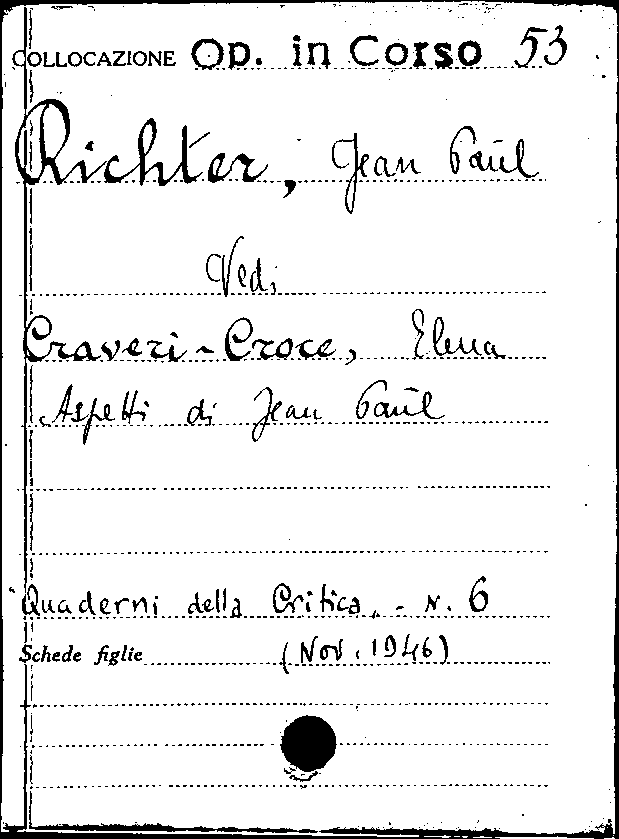 COLLOCAZIONE Op. in Corso 53
Richter, Jean Paul
Vedi
Craveri-Croce, Elena
Aspetti di Jean Paul
"Quaderni della Critica" - N. 6
Schede figlie (Nov. 1946)